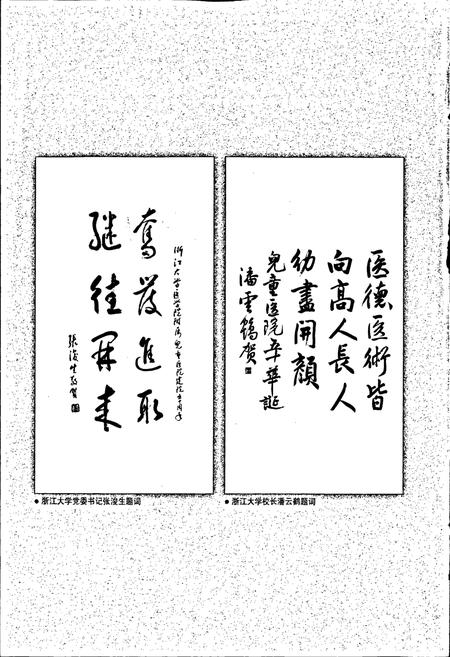 医德医術皆
向高人長人
幼盡開顏
兒童医院卒華誕
潘雲鶴贺
浙江大学医学院附属儿童医院建院五十周年
奮发進取
継往開来
張浚生敬贺
● 浙江大学党委书记张浚生题词
● 浙江大学校长潘云鹤题词